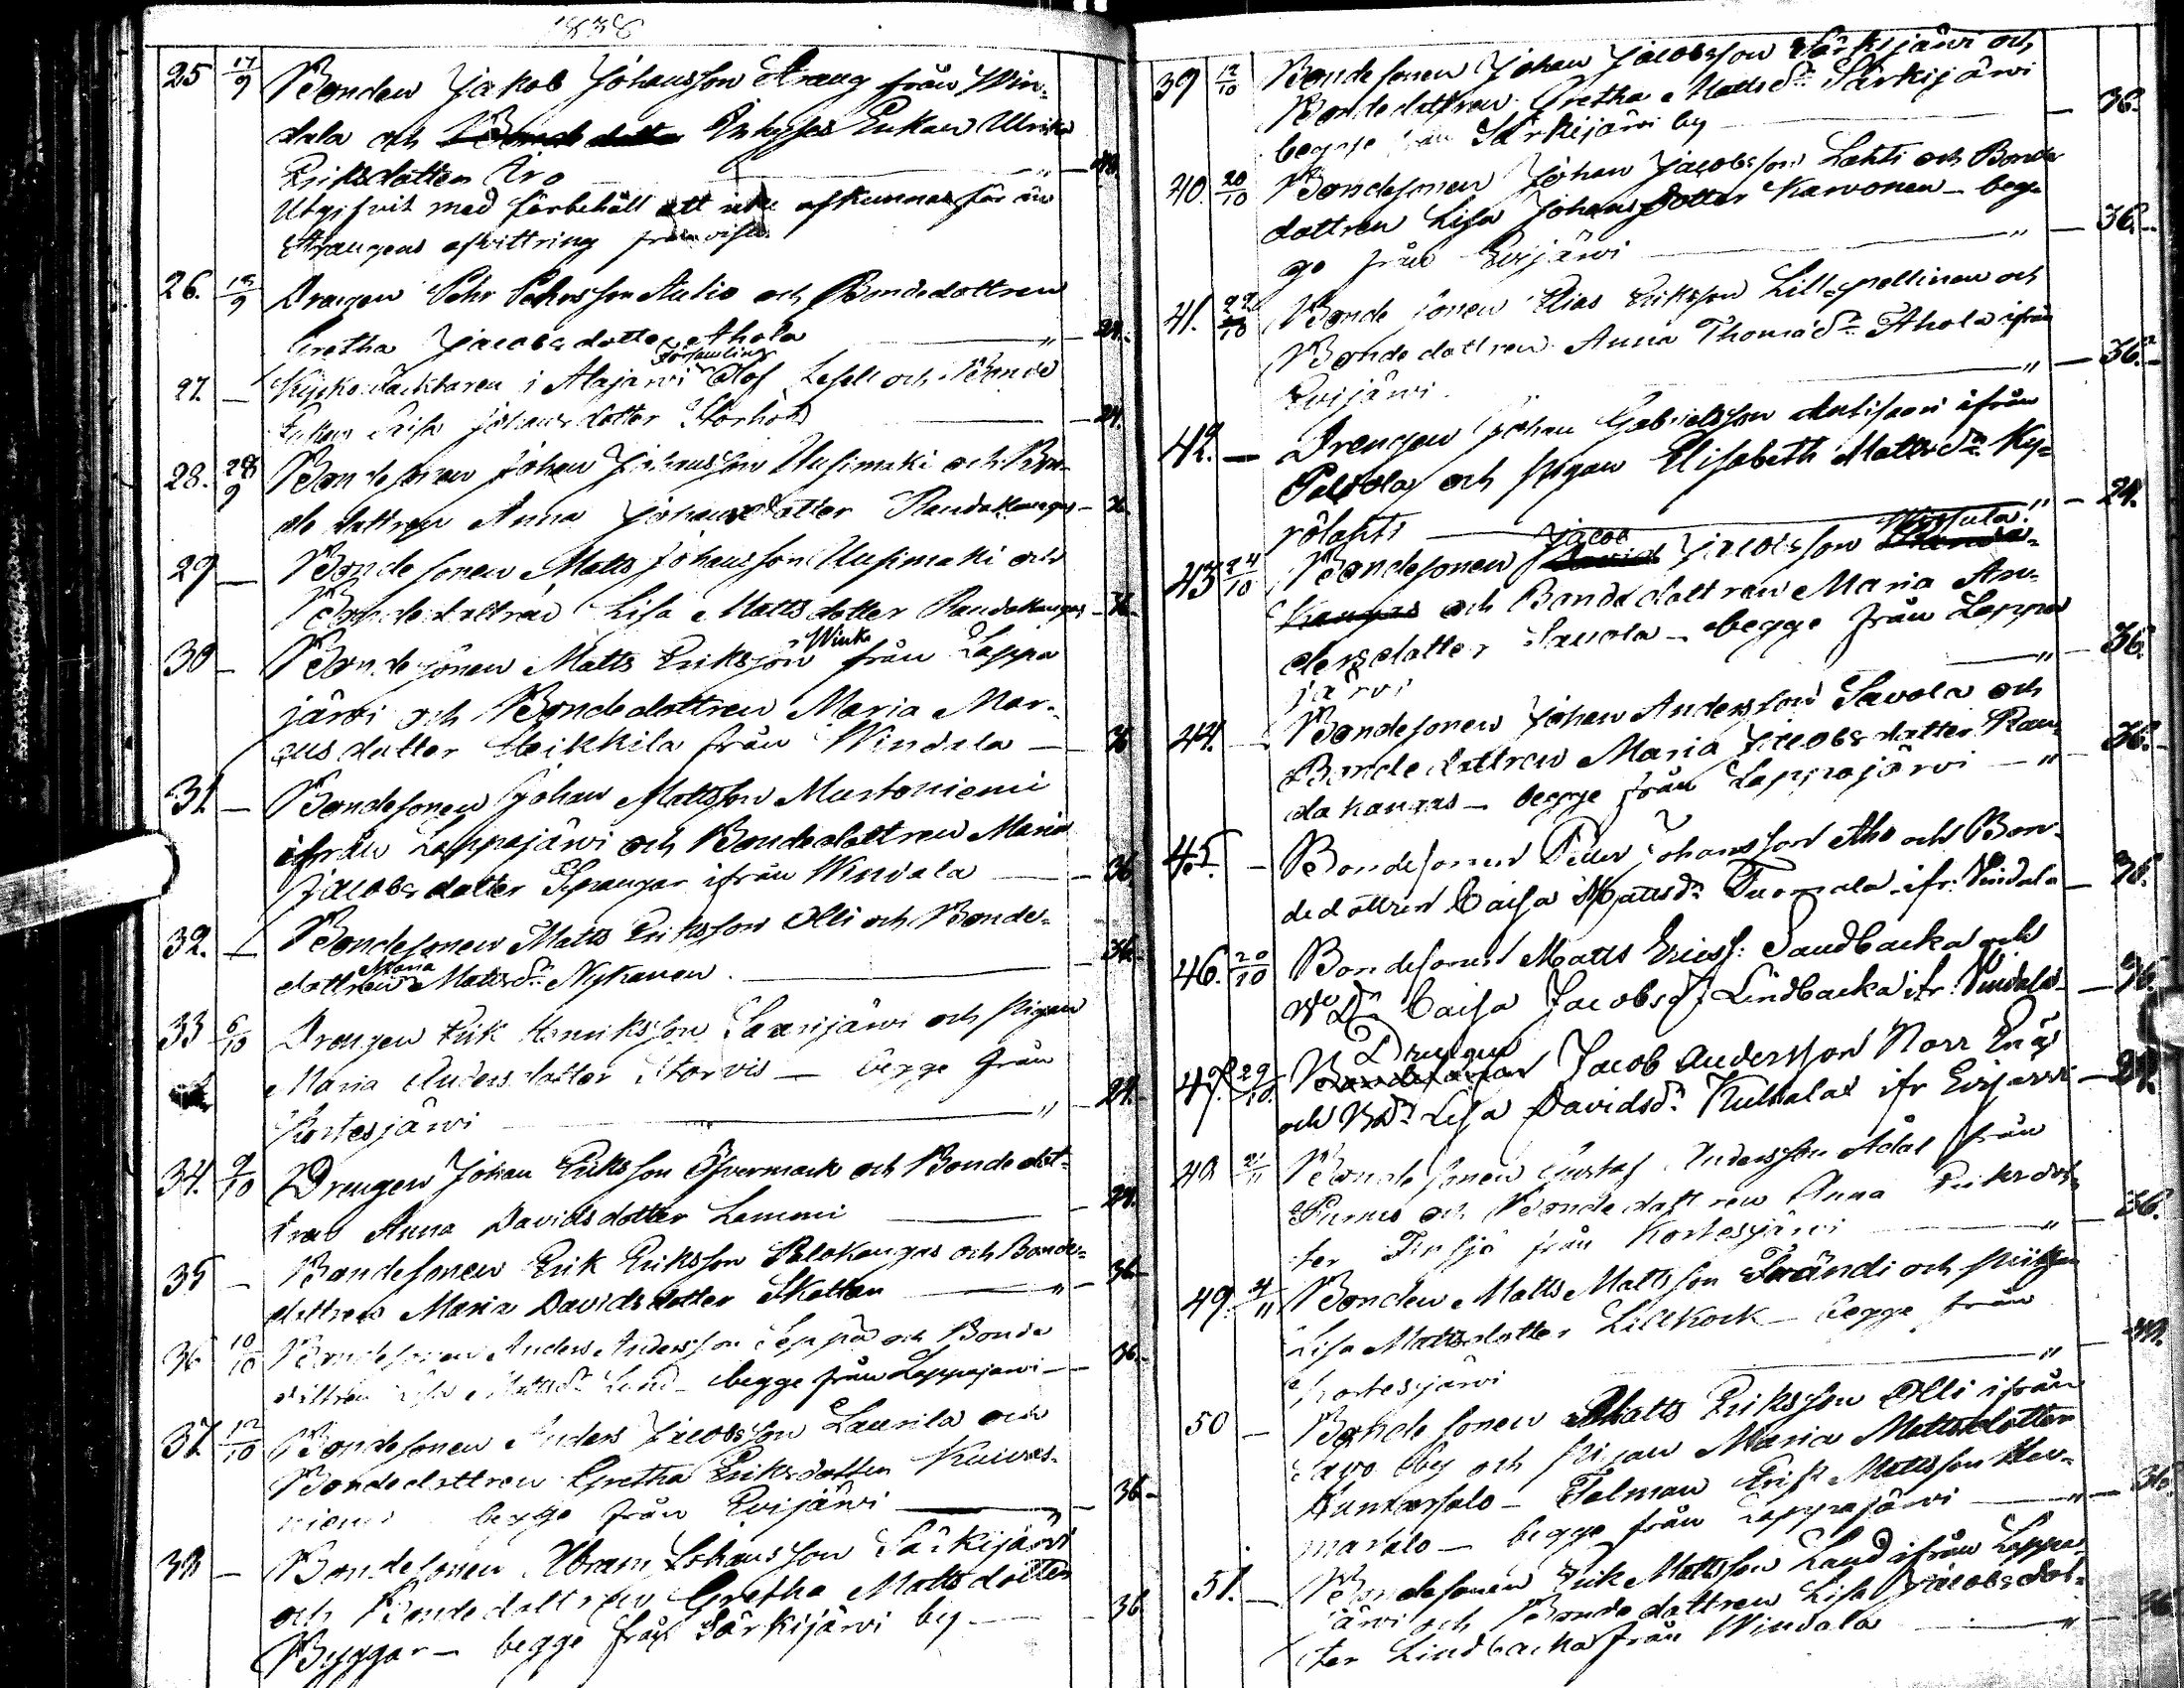 1838
25 17/9 Bonden Jakob Johansson Strang från Win-
dala och Bondedottr Inhyses Enkan Ulrika
Eriksdotter Aro " — 48.
Utgifvit med förbehåll att icke afkunnas för än
Strangens afwittring
26. 18/9 Drengen Pehr Pehrsson Aulio och Bondedottren
Gretha Jacobsdotter Ahola " — 24.
Församling
27. — Kyrkovacktaren i Alajärwi Olof Lesell och Bonde
Enkan Caisa Johansdotter Storholt — 24.
28. 28/9 Bondesonen Johan Johansson Uusimäki och Bon-
de dottren Anna Johansdotter Randakangas — 36
29 — Bondesonen Matts Johansson Uusimaki och
Bondedottren Lisa Mattsdotter Randakangas — 36
Wink
30 — Bondesonen Matts Eriksson från Lappa
järwi och Bondedottren Maria Mar-
cusdotter Heikkilä från Windala — 36
31 — Bondesonen Johan Mattsson Mustoniemi
ifrån Lappajärwi och Bondedottren Maria
Jacobsdotter Sprangar ifrån Windala — 36
32. — Bondesonen Matts Eriksson Olli och Bonde-
Maria
dottren Mattsdr Nykanen — 36.
33 6/10 Drengen Erik Henriksson Saarijärwi och Pigan
Maria Andersdotter Storvis — begge från
Kortesjärwi " — 24.
34. 9/10 Drengen Johan Eriksson Öfvermark och Bondedot-
tren Anna Davidsdotter Lammi — 24.
35 — Bondesonen Erik Eriksson Palokangas och Bonde-
dottren Maria Davidsdotter Skottan " — 36
36 10/10 Bondesonen Anders Andersson Seppä och Bonde
dottren Lisa Mattsdr Lund — begge från Lappajarwi — 36.
37. 12/10 Bondesonen Anders Jacobsson Laurila och
Bondedottren Gretha Eriksdotter Kuivas-
niemi begge från Evijärwi — 36 —
38 — Bondesonen Abram Johansson Särkijärwi
och Bondedottren Gretha Mattsdotter
Byggar — begge från Särkijärwi by — 36
39 12/10 Bondesonen Johan Jacobsson Särkijärwi och
Bondedottren Gretha Mattsdr Särkijärwi
begge från Särkijärwi by — 36.
40. 20/10 Bondesonen Johan Jacobsson Lahti och Bonde
dottren Lisa Johansdotter Karvonen — beg-
ge från Evijärwi " — 36. —
41. 22/10 Bonde sonen Elias Eriksson Lillspellinen och
Bondedottren Anna Thomædr Ahola ifrån
Evijärwi. " — 36. —
42. — Drengen Johan Gabrielsson Antisaari ifrån
Paldola och pigan Elisabeth Mattsdr Ky-
rölahti " — 24.
Jacob Wirkula
43 24/10 Bondesonen David Jacobsson Randa-
kangas och Bondedottren Maria An-
dersdotter Savola — begge från Lappa
järvi " — 36.
44. — Bondesonen Johan Andersson Savola och
Bondedottren Maria Jacobsdotter Ran-
dakangas — begge från Lappajärvi — " 36. —
45. — Bondesonen Petter Johansson Aho och Bon-
dedottren Caisa Mattsdr Tuomala ifr. Vindala — 36.
46. 20/10 Bondesonen Matts Ericss: Sandbacka och
Bdr Caisa Jacobsdr Lindbacka ifr. Vindala — 36.
Drengen
47. 29/10. Bondesonen Jacob Andersson Norr Enäs
och Bdr Lisa Davidsdr Kultalax ifr Evijarvi — 24.
48 2/11 Bondesonen Gustaf Andersson Ådal från
Purmo och Bondedottren Anna Eriksdot-
ter Finsjö från Kortesjärwi " — 36.
49. 4/11 Bonden Matts Mattsson Frändi och Pigan
Lisa Mattsdotter Lillkock — begge från
Kortesjärwi " — 30.
50 — Bonde sonen Matts Eriksson Olli ifrån
Savo by och Pigan Maria Mattsdotter
Kankarsalo — Talman Erik Mattsson Han-
marsalo — begge från Lappajärwi " — 36
51. — Bondesonen Erik Mattsson Lund ifrån Lappa-
järvi och Bondedottren Lisa Jacobsdot-
ter Lindbacka från Windala " — 36